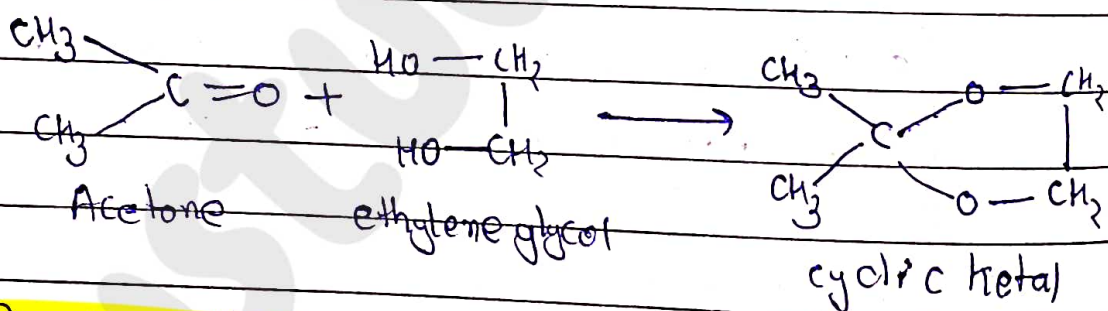 CH3
C=O + HO—CH2
CH3
HO—CH2
CH3
C
O—CH2
CH3
O—CH2
Acetone
ethylene glycol
cyclic ketal